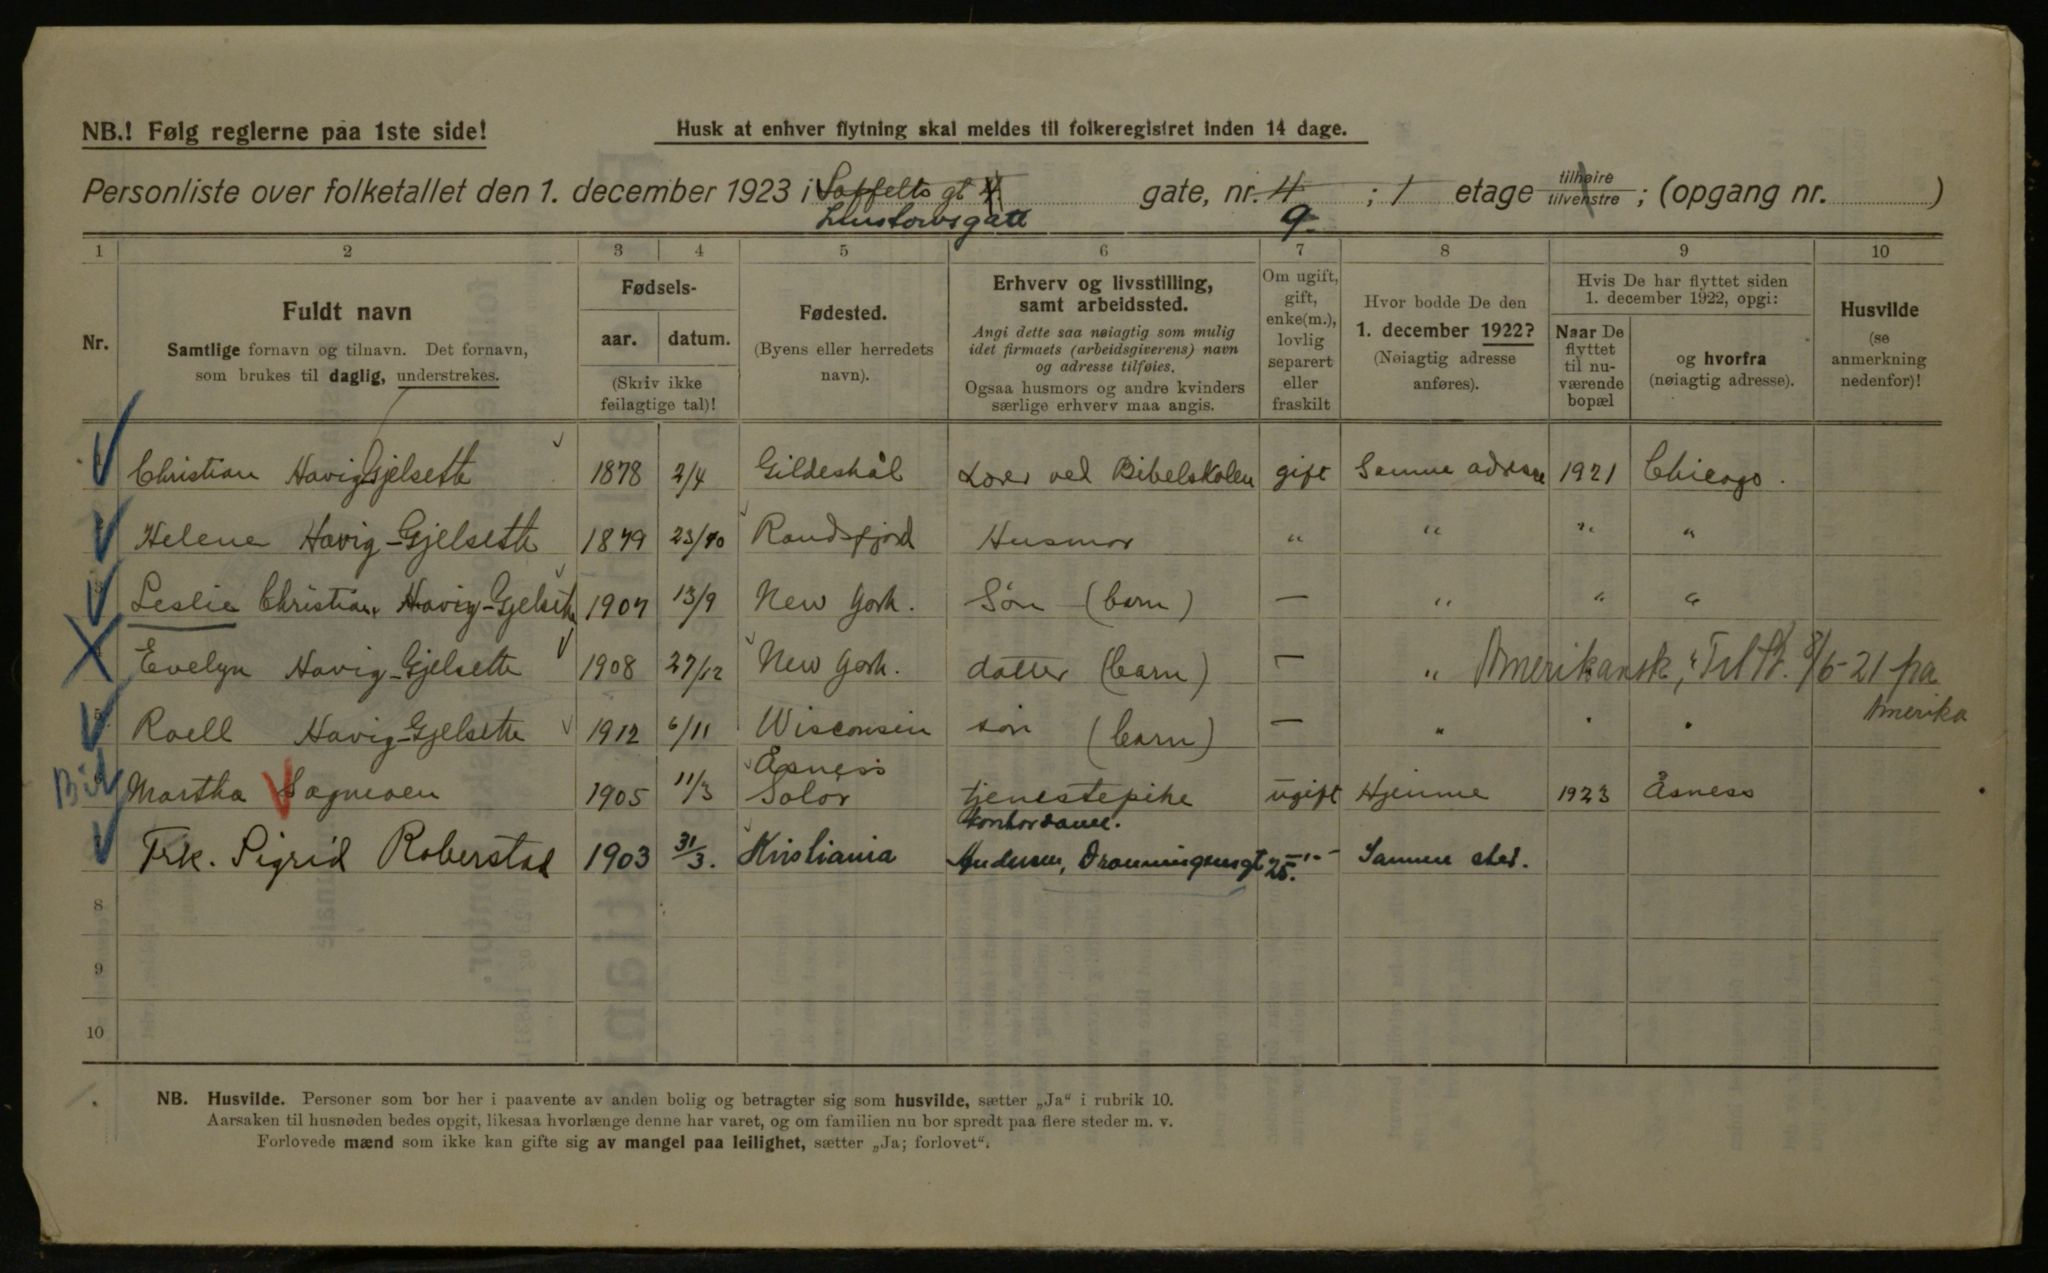 NB.! Følg reglerne paa 1ste side!
Husk at enhver flytning skal meldes til folkeregistret inden 14 dage.
Personliste over folketallet den 1. december 1923 i Soffelts gt 4 gate, nr. 4 ; 1 etage tilhøire tilvenstre ; (opgang nr. )
Linstowsgate 9.
1 2 3 4 5 6 7 8 9 10
Nr.
Fuldt navn
Samtlige fornavn og tilnavn. Det fornavn, som brukes til daglig, understrekes.
Fødsels-
aar. datum.
(Skriv ikke feilagtige tal)!
Fødested.
(Byens eller herredets navn).
Erhverv og livsstilling, samt arbeidssted.
Angi dette saa nøiagtig som mulig idet firmaets (arbeidsgiverens) navn og adresse tilføies.
Ogsaa husmors og andre kvinders særlige erhverv maa angis.
Om ugift, gift, enke(m.), lovlig separert eller fraskilt
Hvor bodde De den 1. december 1922?
(Nøiagtig adresse anføres).
Hvis De har flyttet siden 1. december 1922, opgi:
Naar De flyttet til nuværende bopæl
og hvorfra (nøiagtig adresse).
Husvilde (se anmerkning nedenfor)!
Christian Havig Gjelseth 1878 2/4 Gildeskål Lærer ved Bibelskolen gift Samme adresse 1921 Chicago.
Helene Havig-Gjelseth 1879 23/10 Randsfjord Husmor " " " "
Leslie Christian Havig-Gjelseth 1907 13/9 New York. Søn (barn) — " " "
Evelyn Havig-Gjelseth 1908 27/12 New York. datter (barn) — " Amerikansk, 8/6-21 fra Amerika
5 Roell Havig-Gjelseth 1912 6/11 Wisconsin søn (barn) — " " "
Martha Sagmoen 1905 11/3 Åsness Solør tjenestepike ugift Hjemme 1923 Åsness
Frk. Sigrid Roberstad 1903 31/3. Kristiania kontordame. Andersen, Dronningensgt 25. —"— Samme sted.
8
9
10
NB. Husvilde. Personer som bor her i paavente av anden bolig og betragter sig som husvilde, sætter „Ja“ i rubrik 10.
Aarsaken til husnøden bedes opgit, likesaa hvorlænge denne har varet, og om familien nu bor spredt paa flere steder m. v.
Forlovede mænd som ikke kan gifte sig av mangel paa leilighet, sætter „Ja; forlovet“.